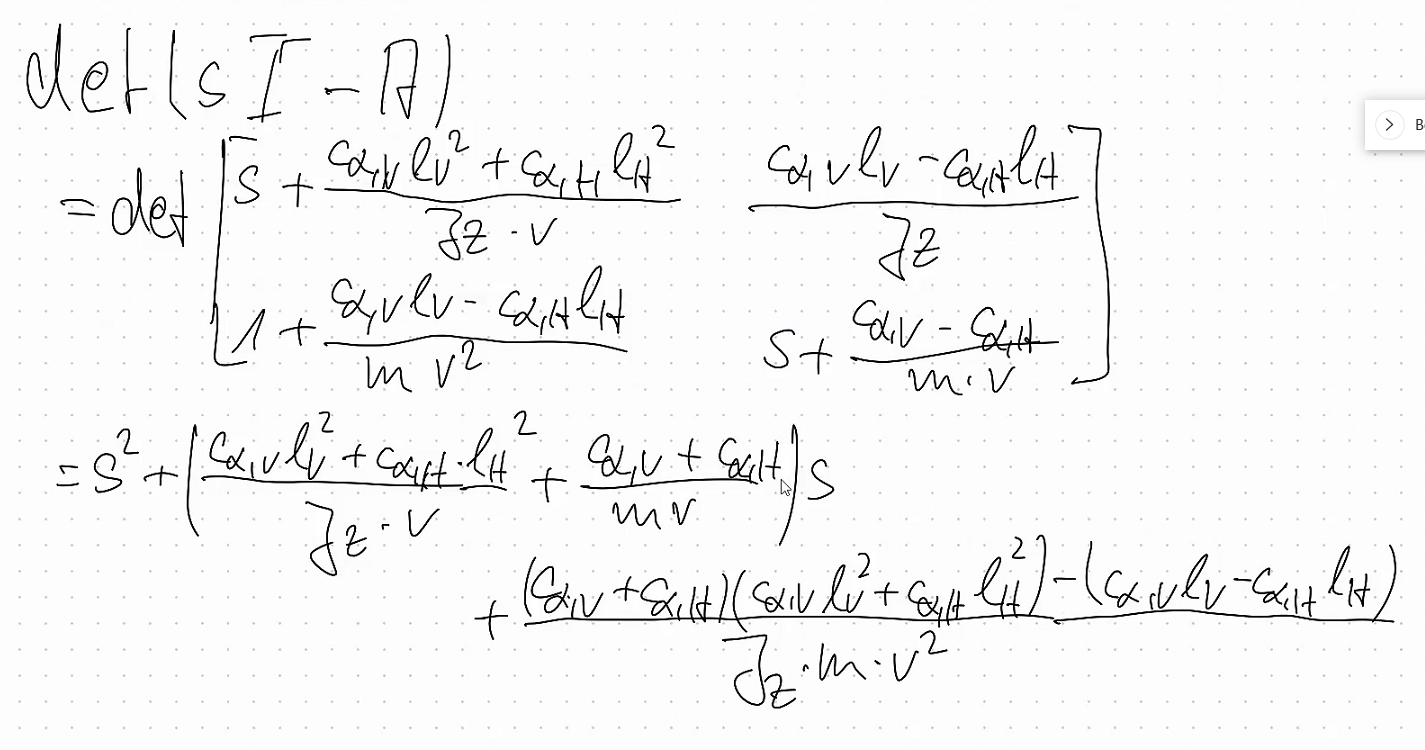 det(sI - A)
= det [ s + (c_{α,V} l_V^2 + c_{α,H} l_H^2)/(J_z · v)    (c_{α,V} l_V - c_{α,H} l_H)/J_z
1 + (c_{α,V} l_V - c_{α,H} l_H)/(m v^2)    s + (c_{α,V} - c_{α,H})/(m · v) ]
= s^2 + ((c_{α,V} l_V^2 + c_{α,H} · l_H^2)/(J_z · v) + (c_{α,V} + c_{α,H})/(m v)) s
+ ((c_{α,V} + c_{α,H})(c_{α,V} l_V^2 + c_{α,H} l_H^2) - (c_{α,V} l_V - c_{α,H} l_H))/(J_z · m · v^2)